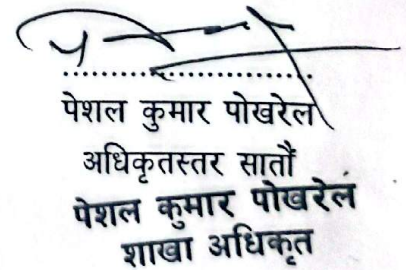 ..............................
पेशल कुमार पोखरेल
अधिकृतस्तर सातौं
पेशल कुमार पोखरेल
शाखा अधिकृत